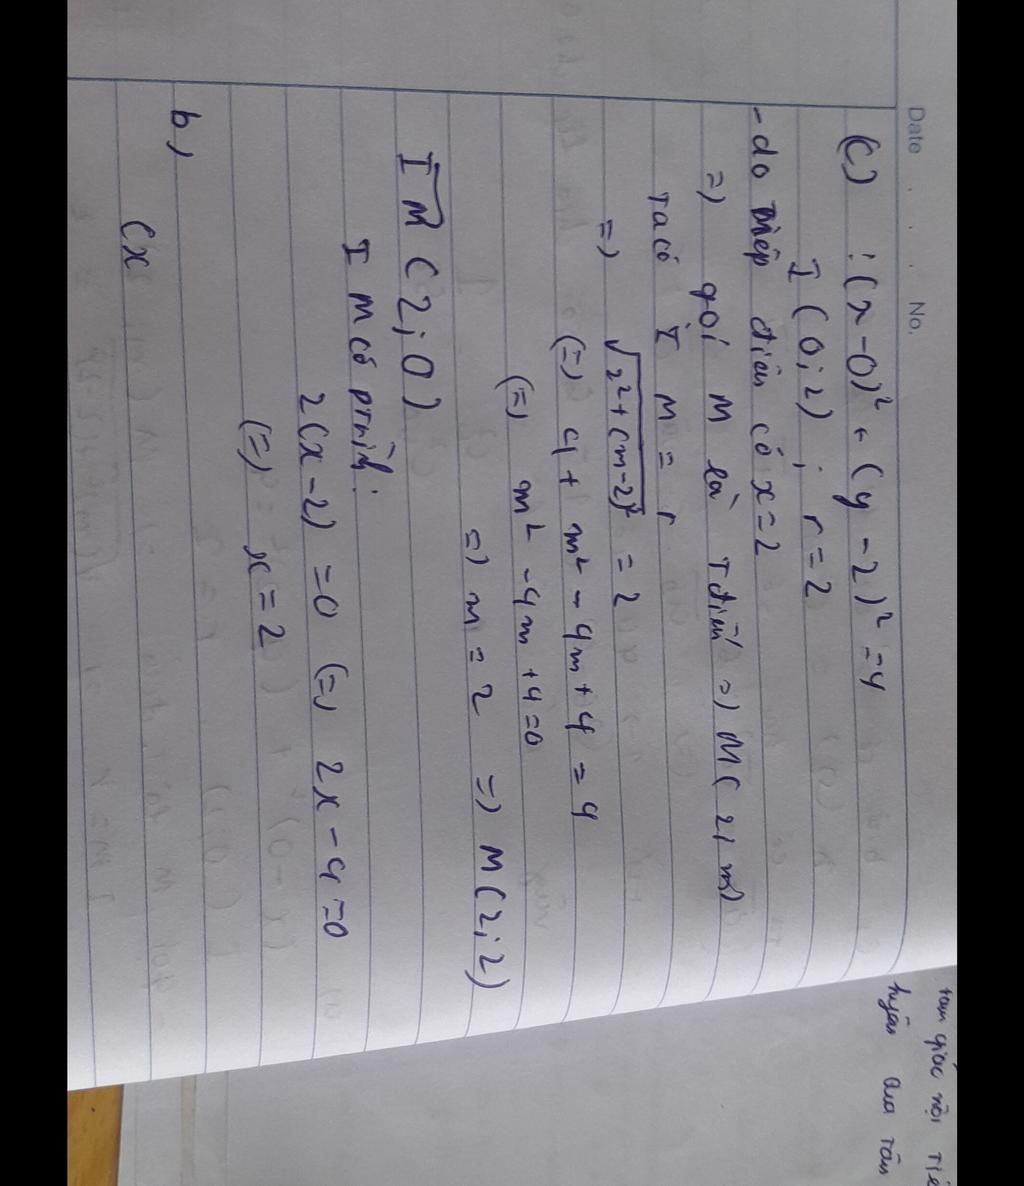 Date . . . No.
(C) : (x - 0)² + (y - 2)² = 4
I (0; 2) ; r = 2
- do tiếp điểm có x = 2
=) gọi M là Tđiểm =) M( 2; m)
Ta có I M = r
=) √2² + (m-2)² = 2
(=) 4 + m² - 4m + 4 = 4
(=) m² - 4m + 4 = 0
=) m = 2 =) M (2; 2)
IM (2; 0)
I M có ptrình:
2(x - 2) = 0 (=) 2x - 4 = 0
(=) x = 2
b)
(x
tam giác nội tiế
huyền qua tâm